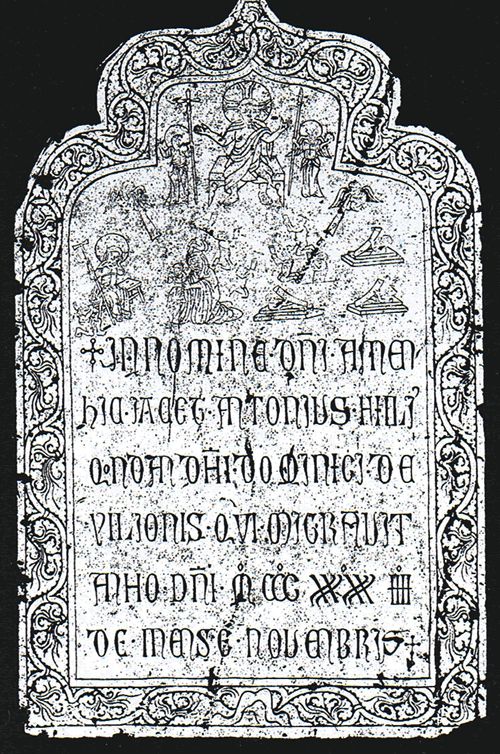 ✝ IN NOMINE · DNI · AMEN
HIC · IACET · ANTONIUS · FILI
QONDAM DNI · DOMINICI · DE
VILIONIS · QVI · MIGRAUIT
ANNO · DNI · M CCC XXXX IIII
DE · MENSE · NOUEMBRIS ✝